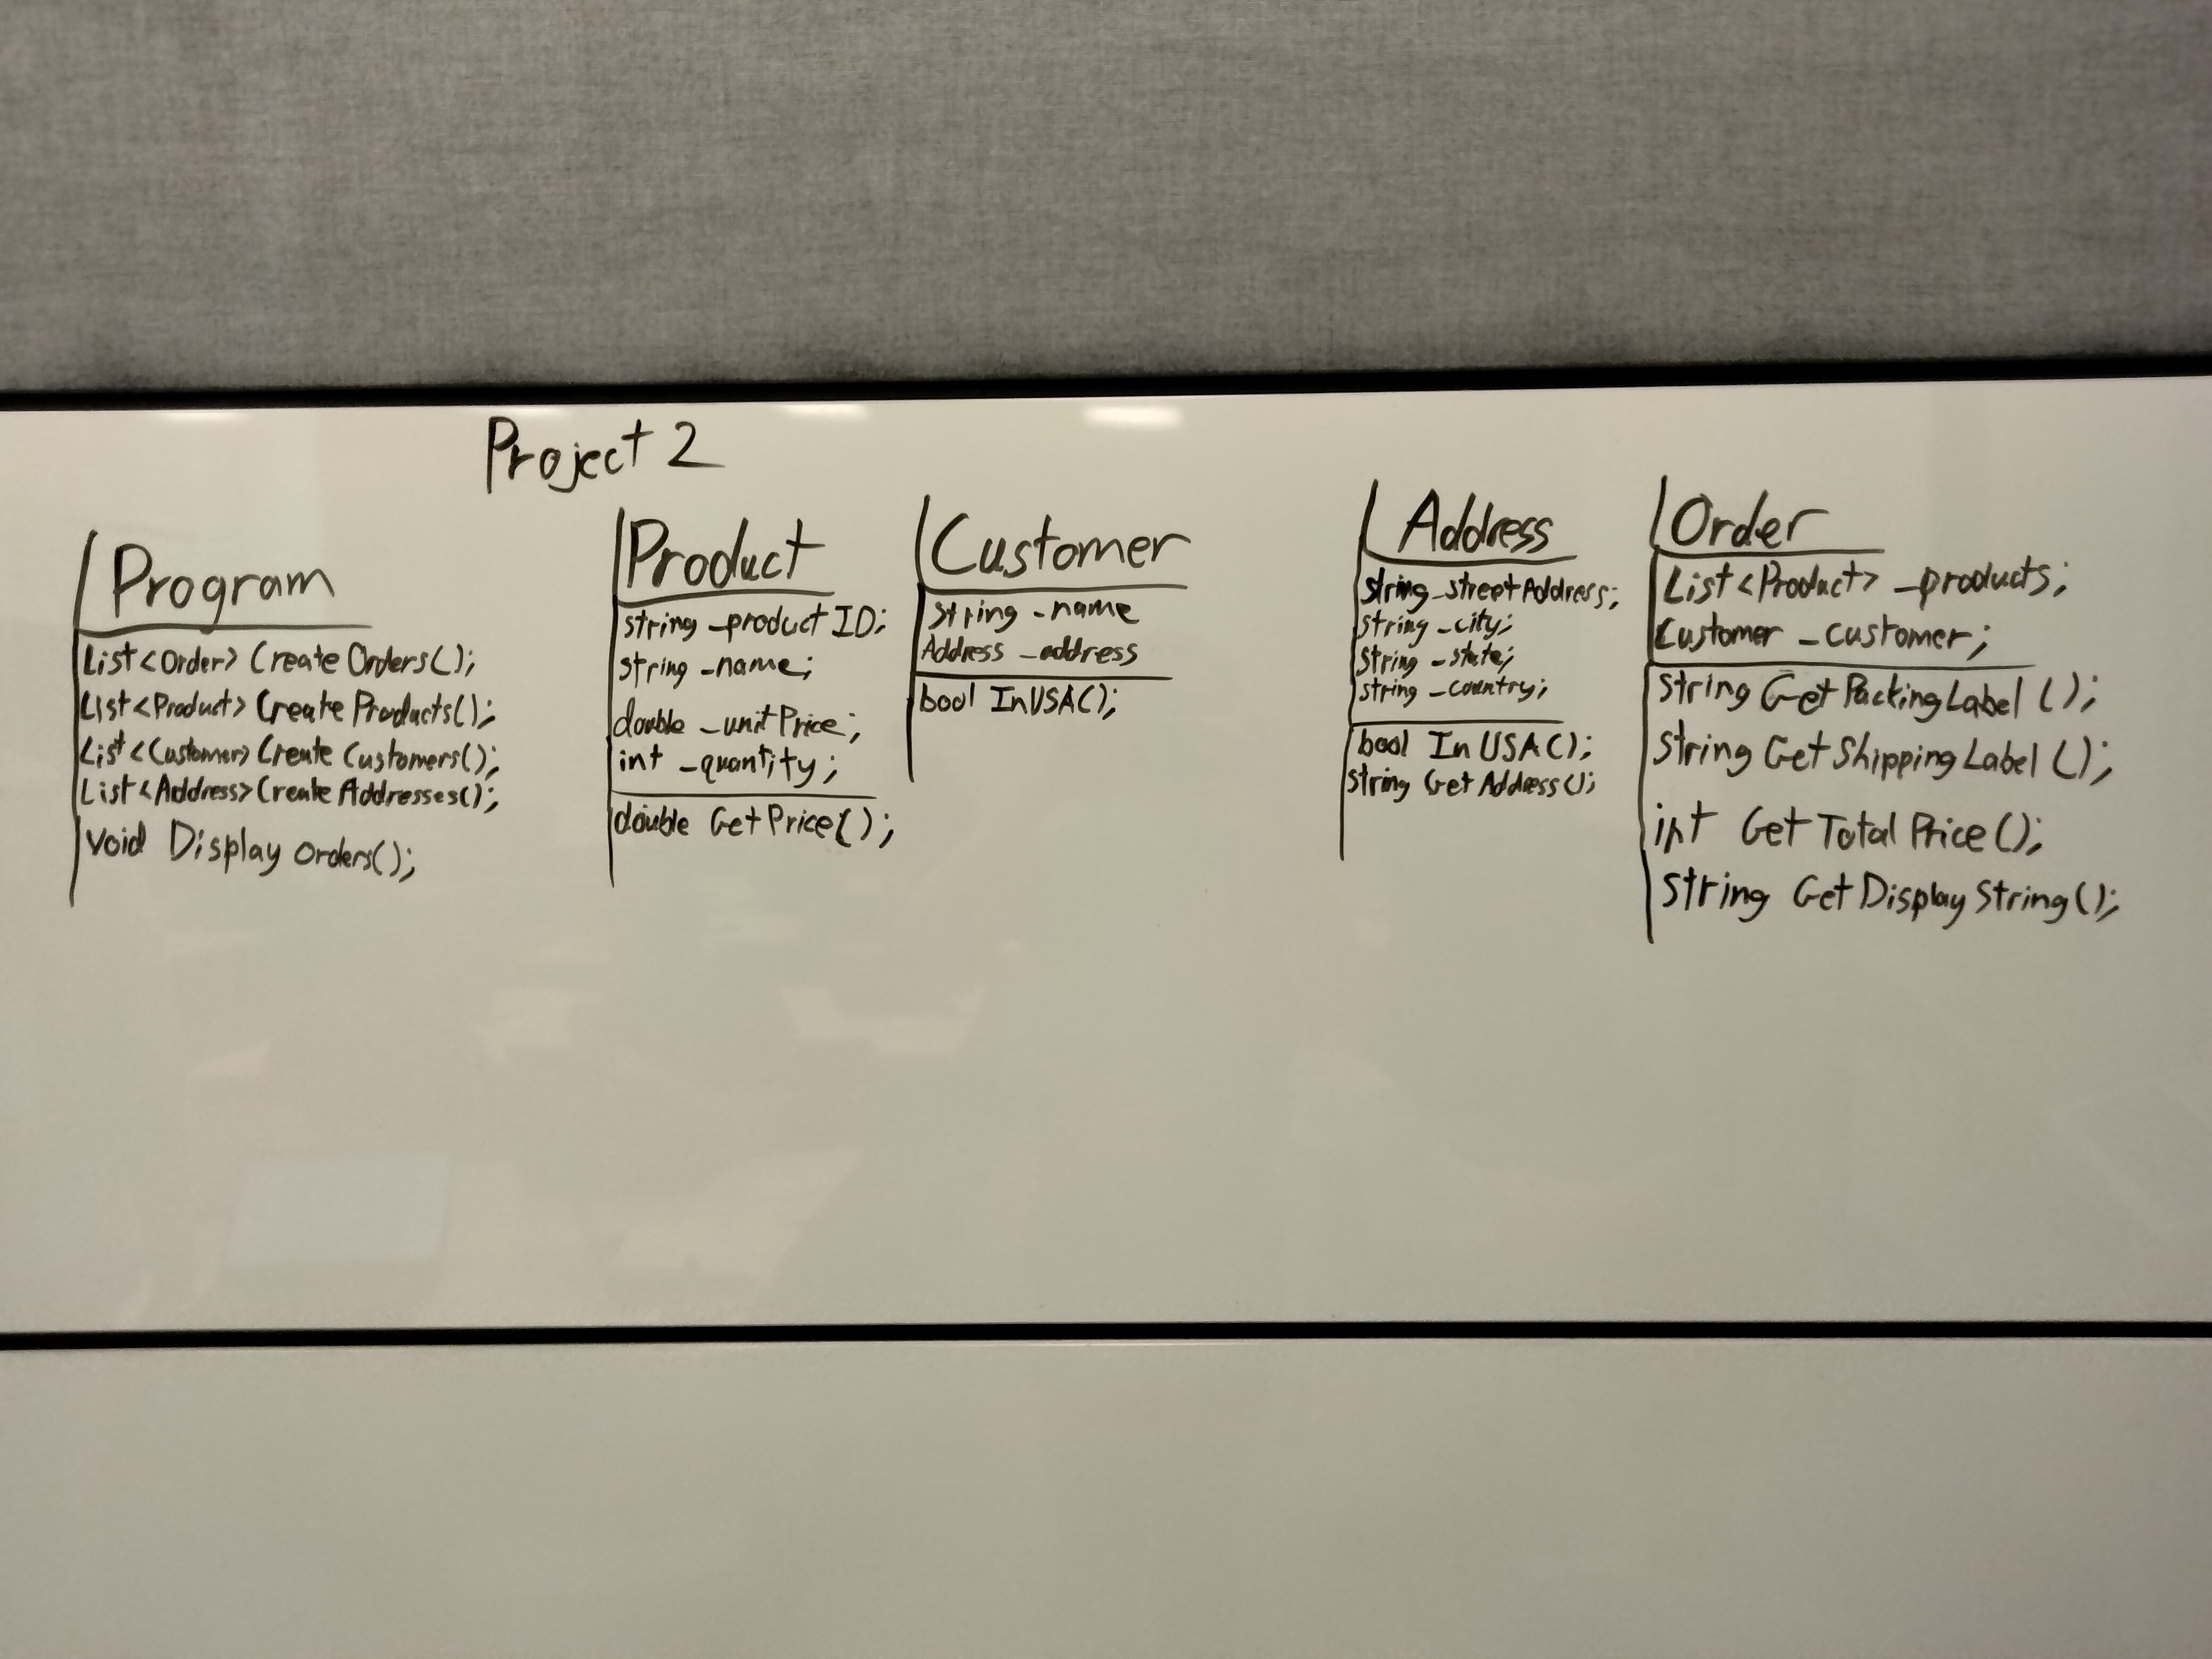 Project 2
Program
List<Order> Create Orders();
List<Product> Create Products();
List<Customer> Create Customers();
List<Address> Create Addresses();
void Display Orders();
Product
string _product ID;
string _name;
double _unitPrice;
int _quantity;
double GetPrice();
Customer
string _name
Address _address
bool InUSA();
Address
string _streetAddress;
string _city;
string _state;
string _country;
bool InUSA();
string GetAddress();
Order
List<Product> _products;
Customer _customer;
string GetPackingLabel();
string GetShippingLabel();
int GetTotalPrice();
string GetDisplayString();